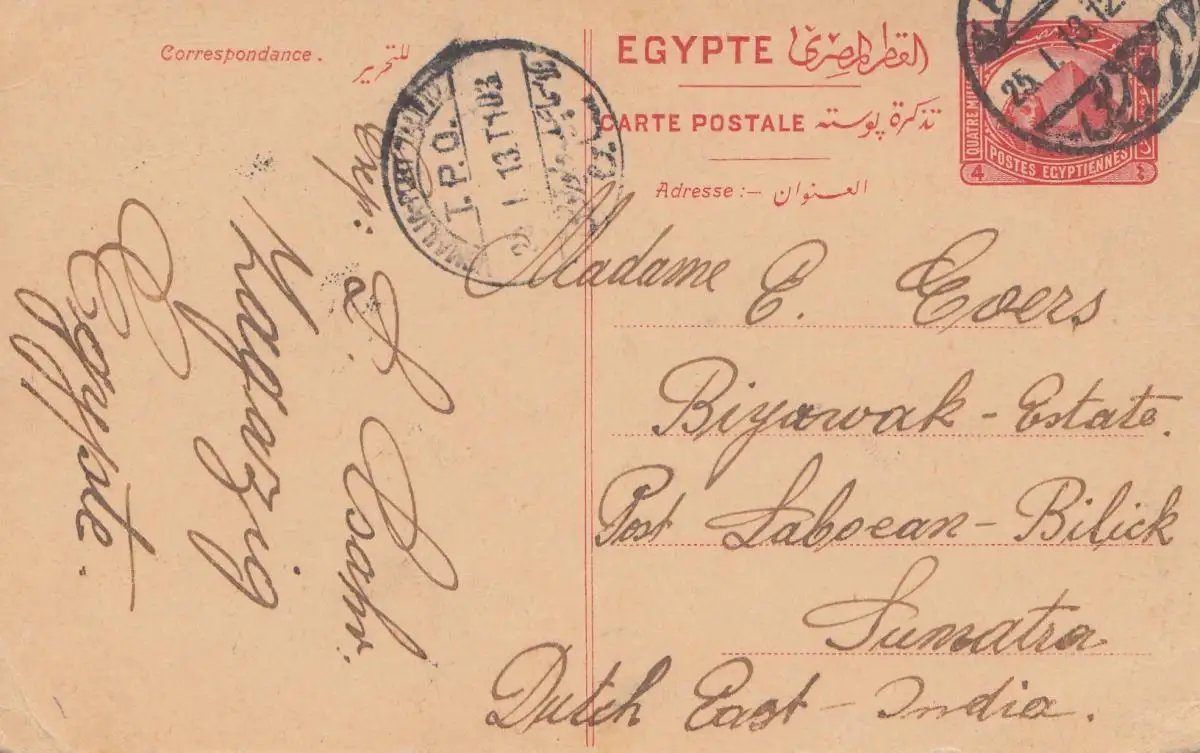 Correspondance. للتحرير
EGYPTE القطر المصرى
CARTE POSTALE تذكرة بوسته
Adresse :— العنوان
QUATRE MILL
POSTES EGYPTIENNES
4 ٤
25. I. 13. 12
T.P.O.
I. 13. T 103
Madame E. Evers
Biyawak - Estate.
Post Laboean - Bilick
Sumatra
Dutch East - India.
Exp:
Zagazig
Egypte.